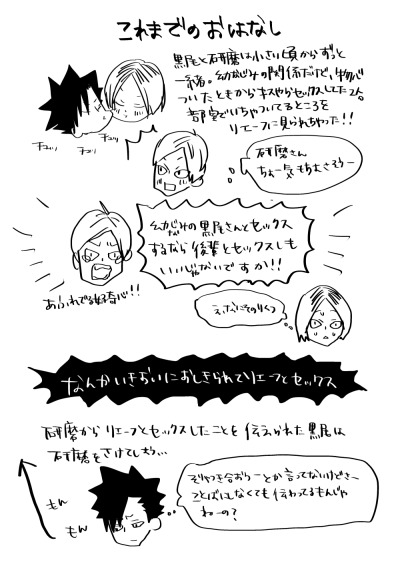 これまでのおはなし
黒尾と研磨は小さい頃からずっと
一緒。幼なじみの関係だけど、物心
ついたときからキスやらセックスしてた2人。
部室でいちゃついてるところを
リエーフに見られちゃった!!
チュッ
チュッ
チュッ
研磨さん
ちょー気もちよさそうー
幼なじみの黒尾さんとセックス
するなら後輩とセックスしても
いいじゃないですか!!
あふれでる好奇心!!
え、なにそのりくつ
なんかいきおいにおしきられてリエーフとセックス
研磨からリエーフとセックスしたことを伝えられた黒尾は
研磨をさけてしまう…
もん
もん
そりゃつき合おうーとか言ってないけどさー
ことばにしなくても伝わってるもんじゃ
ねーの?